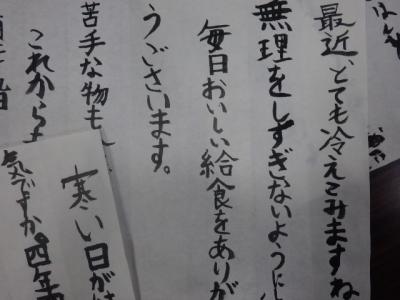 最近、とても冷えこみますね
無理をしすぎないように
毎日おいしい給食をありが
うございます。
苦手な物も
これからも
寒い日が
気ですか。四年